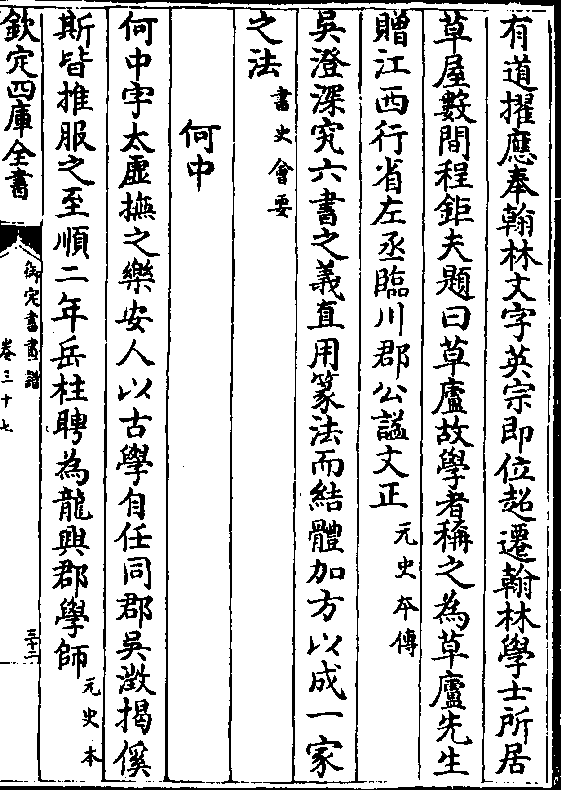 有道擢應奉翰林文字英宗即位超遷翰林學士所居
草屋數間程鉅夫題曰草廬故學者稱之為草廬先生
贈江西行省左丞臨川郡公諡文正元史本傳
吳澄深究六書之義直用篆法而結體加方以成一家
之法書史會要
何中
何中字太虛撫之樂安人以古學自任同郡吳澂揭傒
斯皆推服之至順二年岳柱聘為龍興郡學師元史本
欽定四庫全書
御定書畫譜
卷三十七
三十二